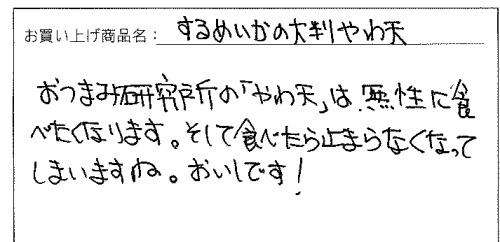 お買い上げ商品名：するめいかの大判やわ天
おつまみ研究所の「やわ天」は、無性に食
べたくなります。そして食べたら止まらなくなって
しまいますね。おいしです！